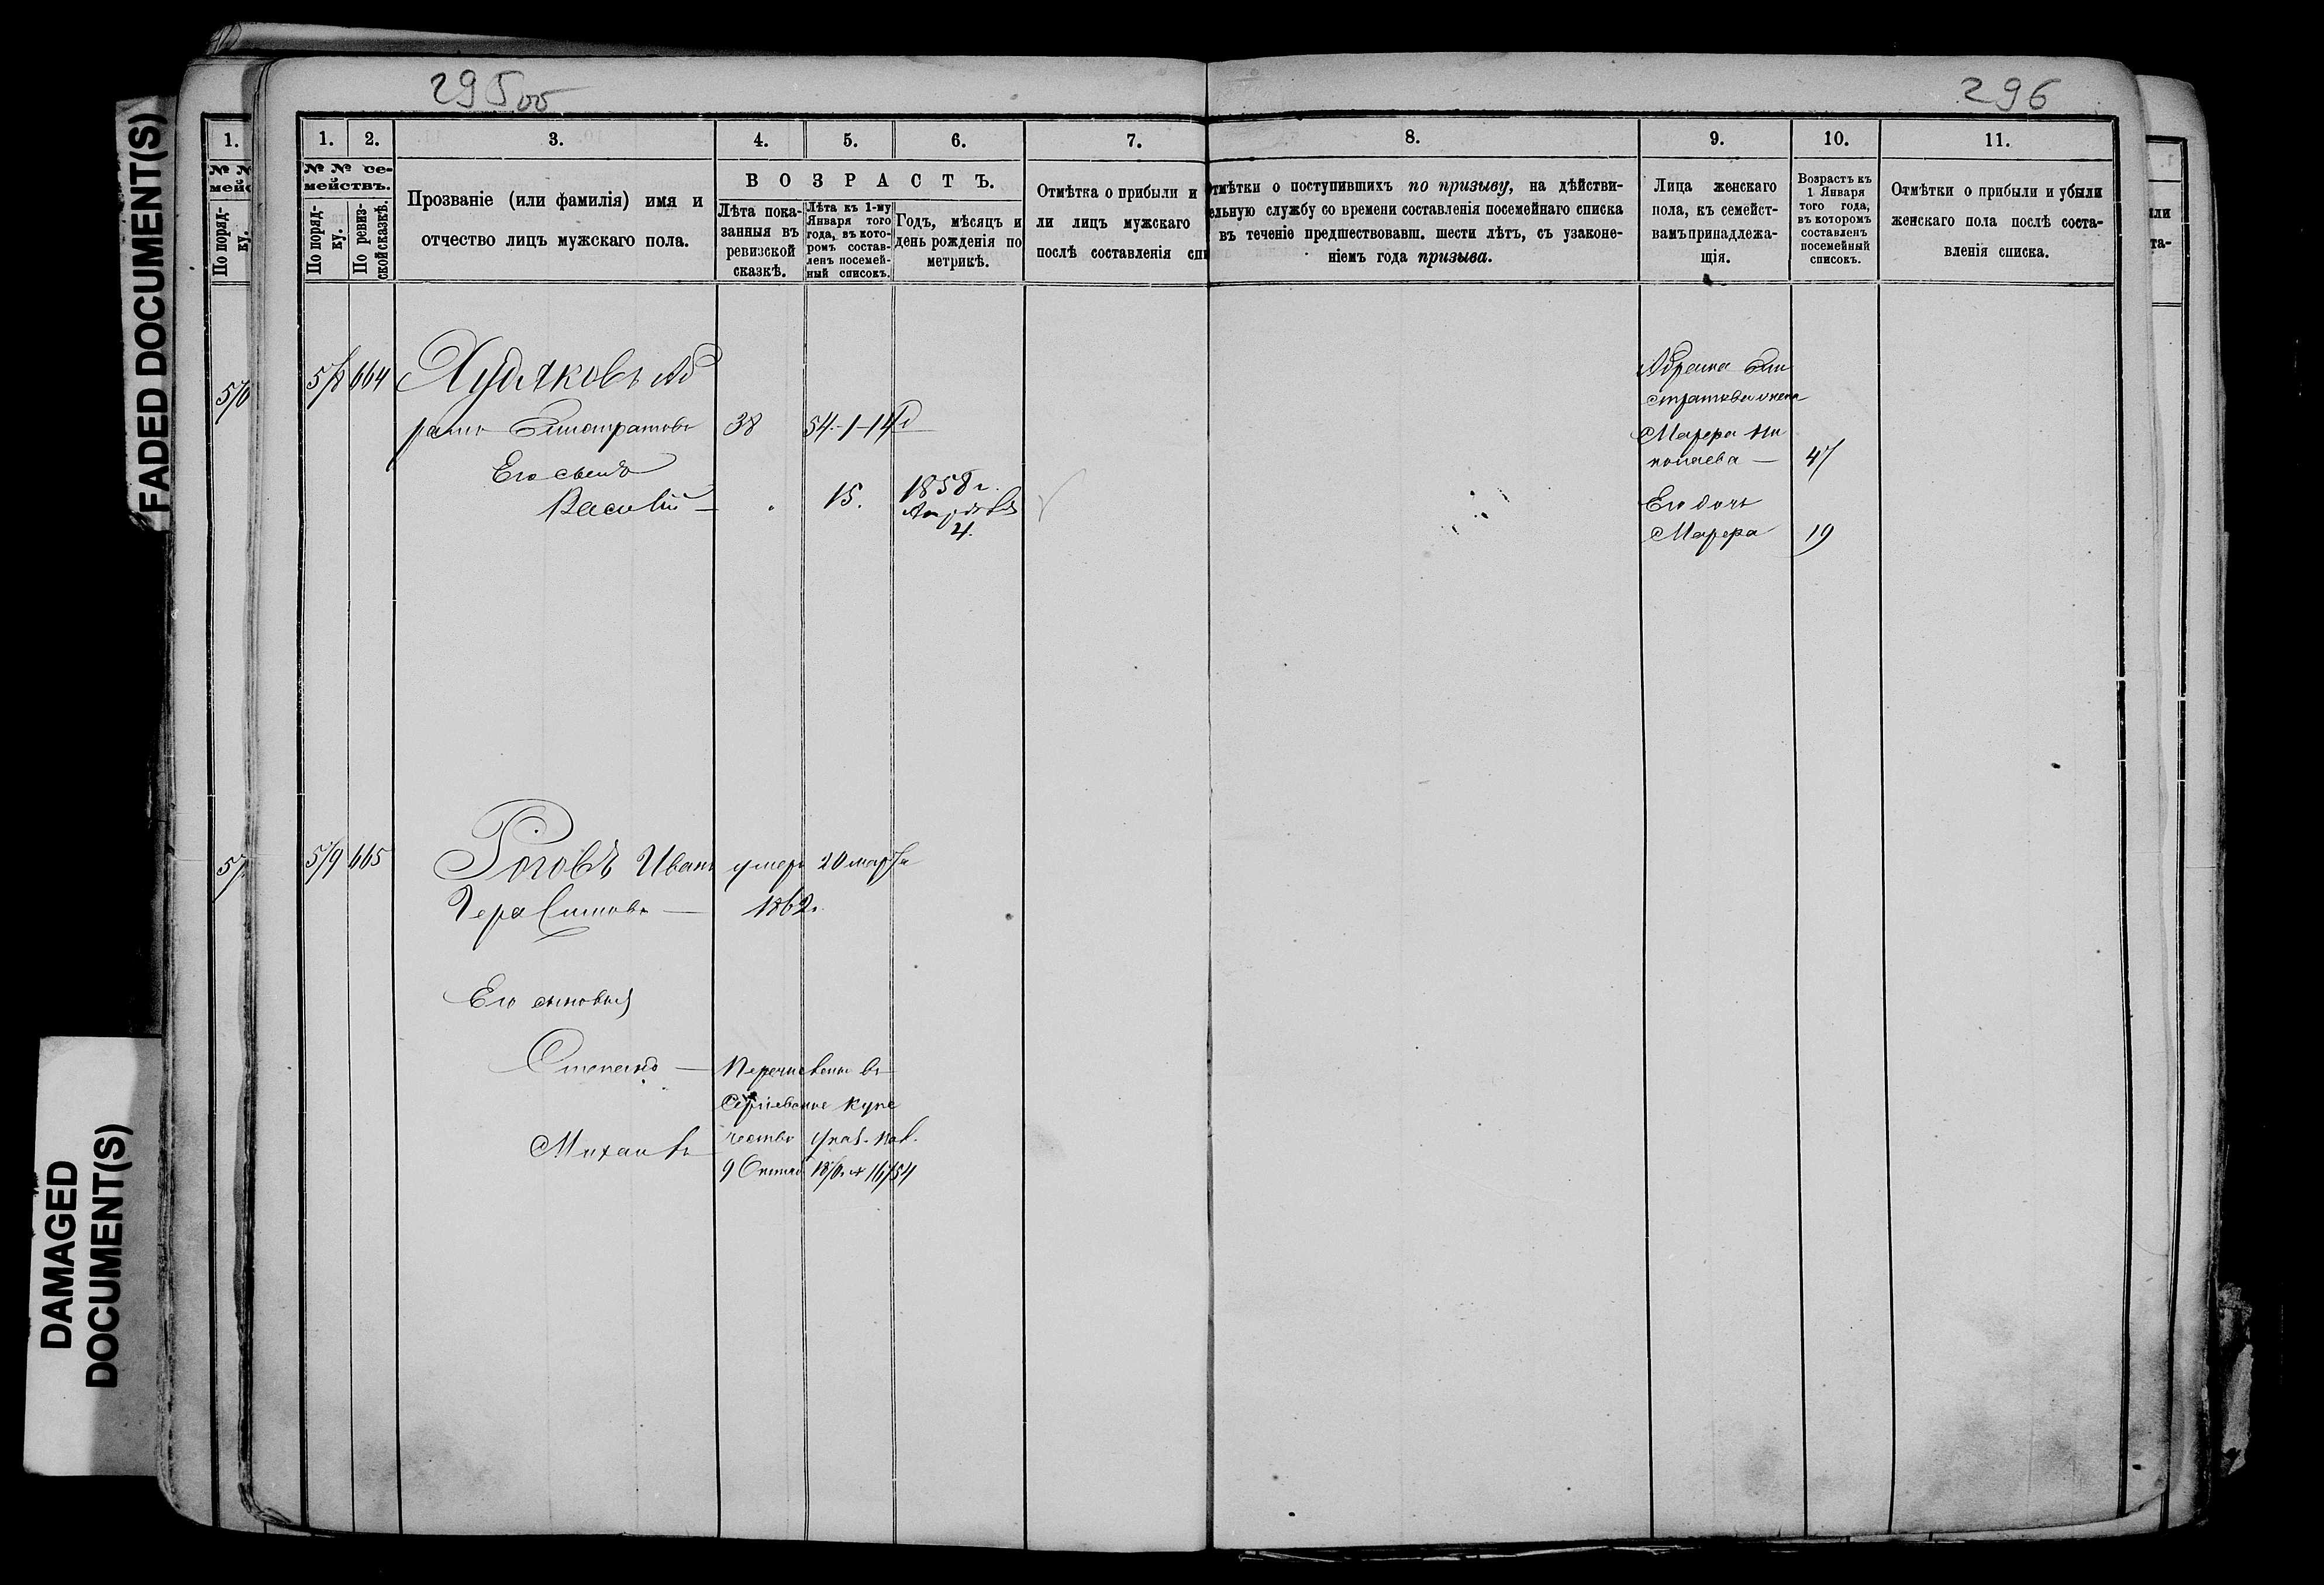 FADED DOCUMENT(S)
DAMAGED
DOCUMENT(S)
295 об
296
1.
1. 2. 3. 4. 5. 6. 7. 8. 9. 10. 11.
№ №
мейс
По поряд-
ку.
№ № се-
мействъ.
По поряд-
ку.
По ревиз-
ской сказкѣ.
Прозваніе (или фамилія) имя и
отчество лицъ мужскаго пола.
ВОЗРАСТЪ.
Лѣта пока-
занныя въ
ревизской
сказкѣ.
Лѣта къ 1-му
Января того
года, въ кото-
ромъ состав-
ленъ посемей-
ный списокъ.
Годъ, мѣсяцъ и
день рожденія по
метрикѣ.
Отмѣтка о прибыли и
ли лицъ мужскаго
послѣ составленія спи
тмѣтки о поступившихъ по призыву, на дѣйстви-
ельную службу со времени составленія посемейнаго списка
въ теченіе предшествовавш. шести лѣтъ, съ узаконе-
ніемъ года призыва.
Лица женскаго
пола, къ семейст-
вамъ принадлежа-
щія.
Возрастъ къ
1 Января
того года,
въ которомъ
составленъ
посемейный
списокъ.
Отмѣтки о прибыли и убыли
женскаго пола послѣ соста-
вленія списка.
ли
та-
664 Худяковъ
38 54
Его сынъ
Василій 15. 1858 г.
4.
Марфа Ни
колаева 47
Его дочь
Марфа 19
665 Роговъ Иванъ умеръ 20 марта
Герасимовъ 1862 г.
Его сыновья
Степанъ Перечислены въ
Сергіевское купе
Михаилъ чество указ. пал.
9 16754